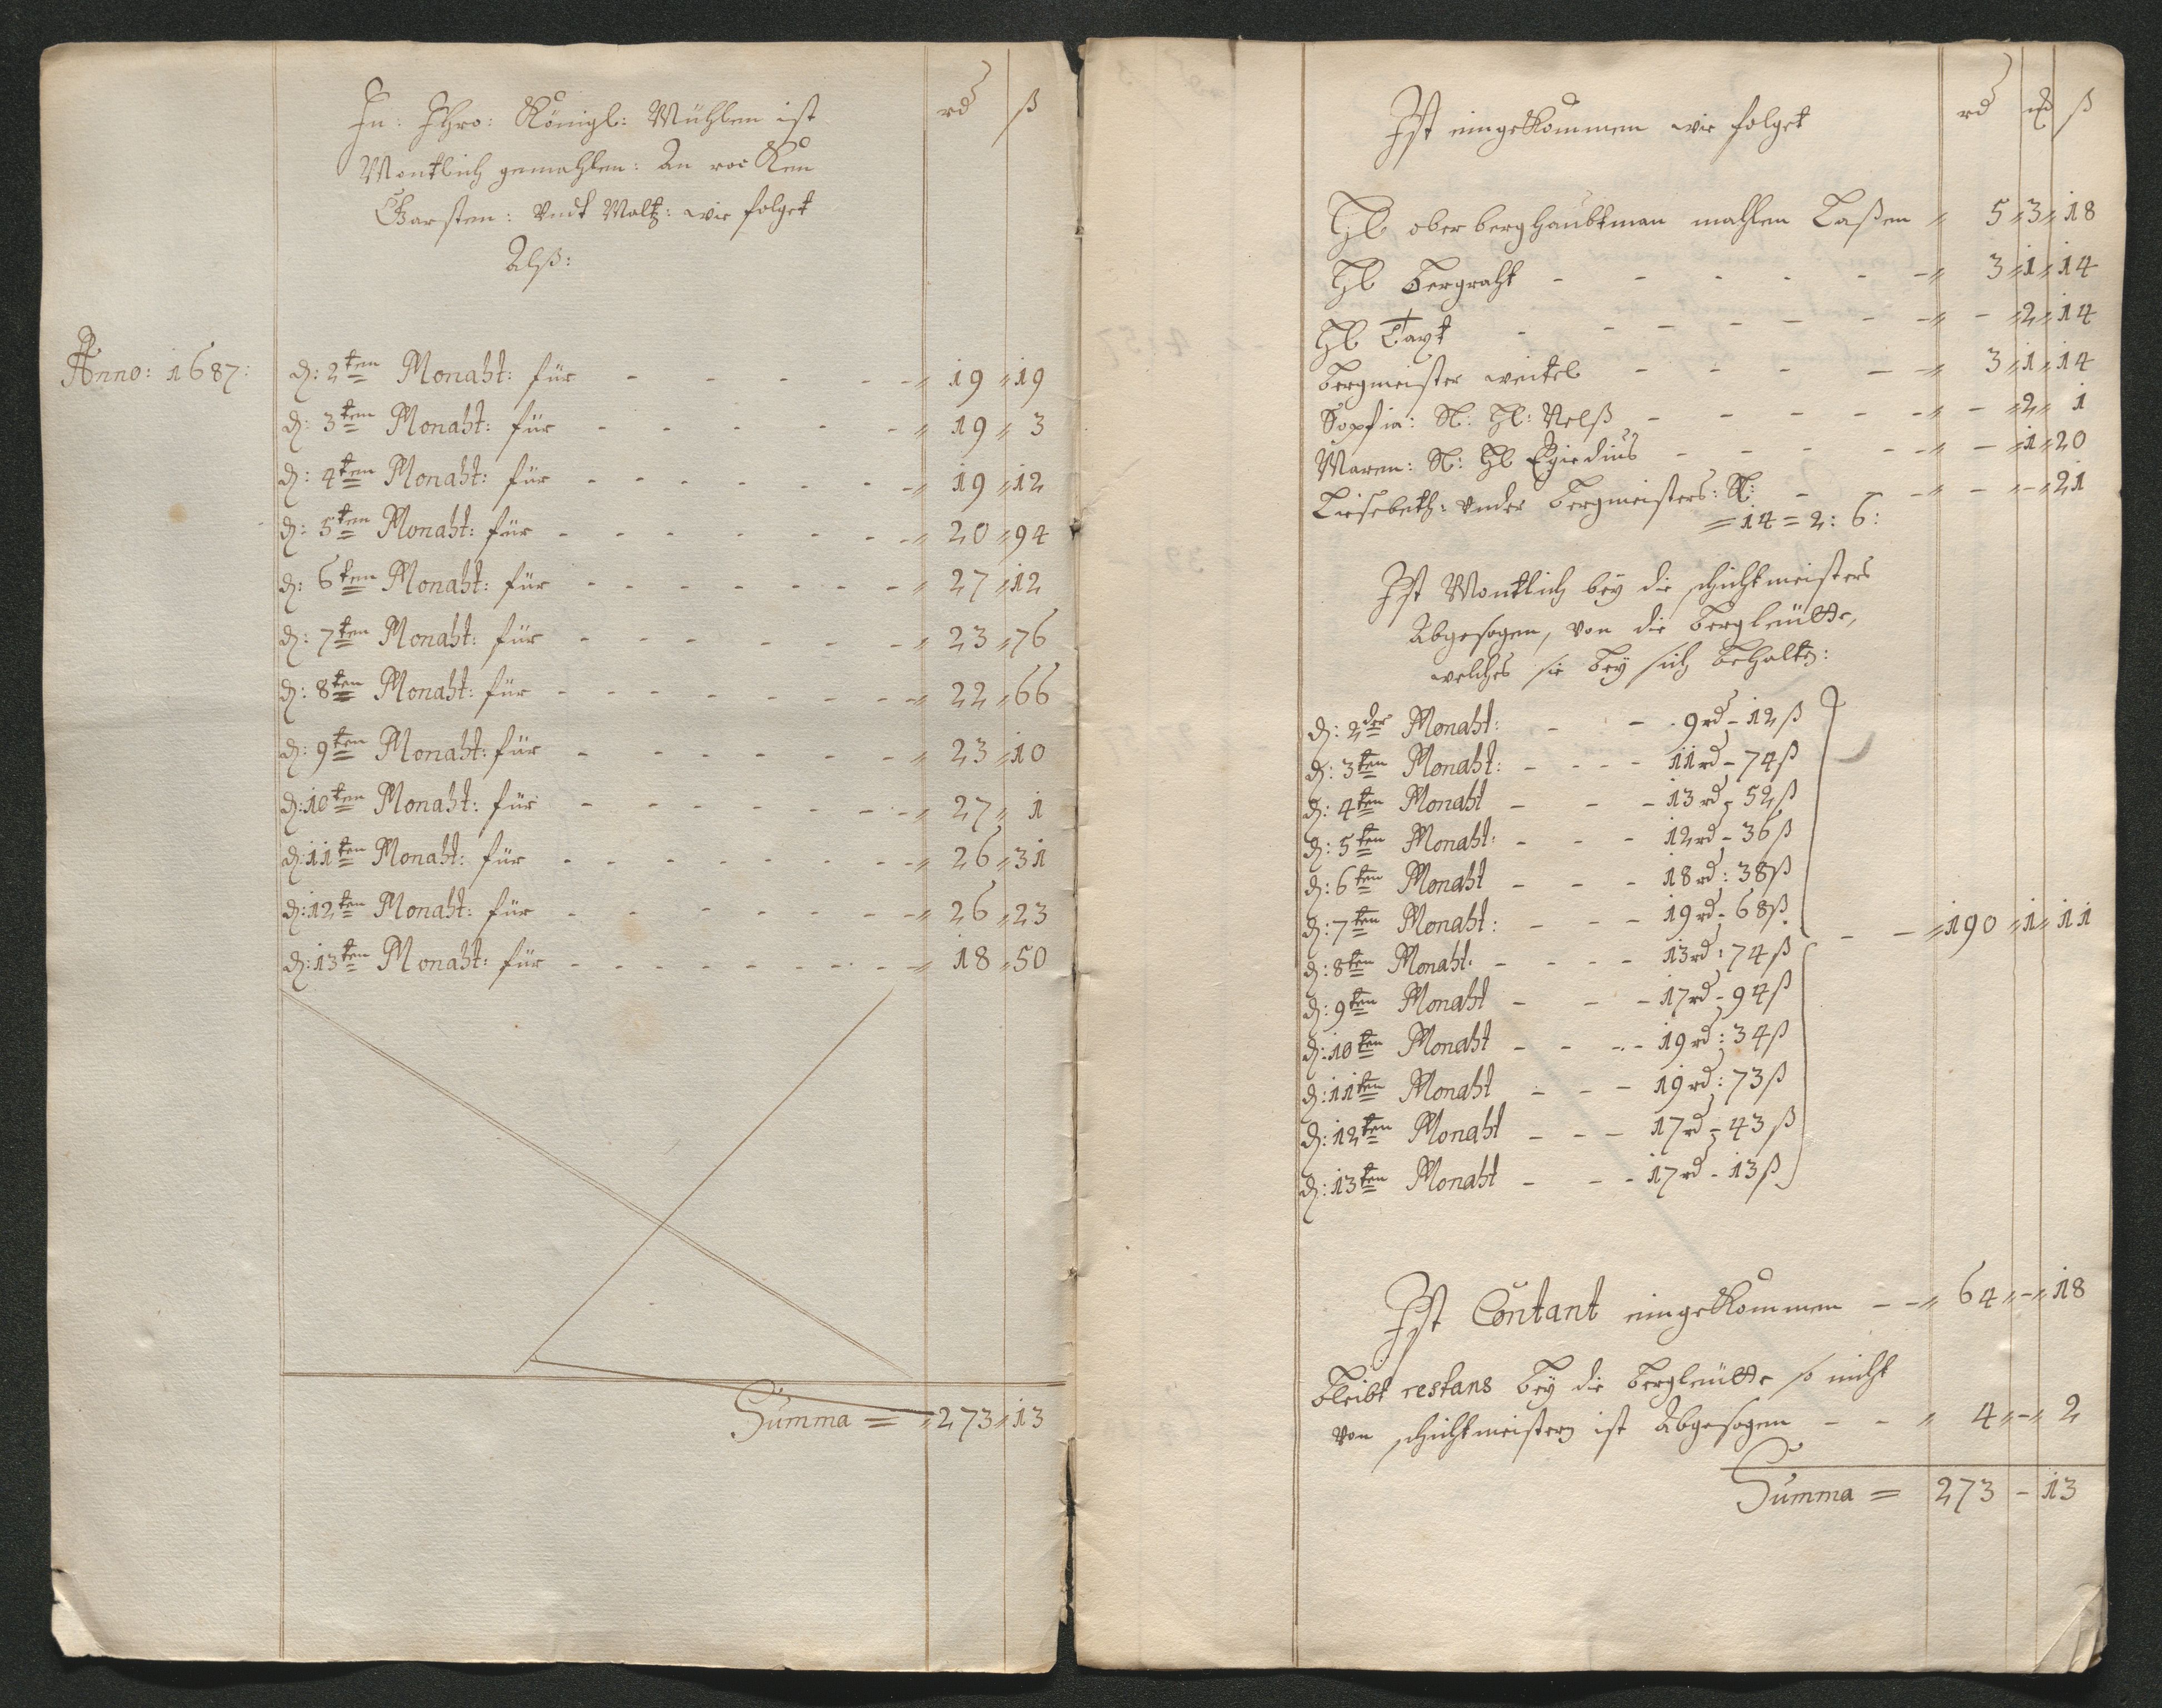 In: Ihro: Königl: Mühlen ist
Montlich gemahlen: An rocken
Garsten: Undt Maltz: wie folget
Alß:
rd ß
Anno: 1687:
d: 2ten Monaht: für - - - - - 19 19
d: 3ten Monaht: für - - - - - 19 3
d: 4ten Monaht: für - - - - - 19 12
d: 5ten Monaht: für - - - - - 20 94
d: 6ten Monaht: für - - - - - 27 12
d: 7ten Monaht: für - - - - - 23 76
d: 8ten Monaht: für - - - - - 22 66
d: 9ten Monaht: für - - - - - 23 10
d: 10ten Monaht: für - - - - - 27 1
d: 11ten Monaht: für - - - - - 26 31
d: 12ten Monaht: für - - - - - 26 23
d: 13ten Monaht: für - - - - - 18 50
Summa = 273 13
Ist eingekommen wie folget
rd ß
Hl oberberghaubtman mahlen Laßen 5 3 18
Hl Bergraht - - - - - 3 1 14
Hl Taxt - - - - - - 2 14
Bergmeister weitel - - - - 3 1 14
Sopfia: N: Hl: Nelß - - - - - 2 1
Maren: N: Hl Egiedius - - - - - 1 20
Liesebeth: Under Bergmeisters: N: - - - - 21
= 14 = 2: 6:
Ist Montlich bey die schichtmeisters
Abgesogen, von die Bergleütte,
welches sie bey sich behalten:
d: 2der Monaht: - - 9 rd - 12 ß
d: 3ten Monaht: - - - - 11 rd - 74 ß
d: 4ten Monaht - - - 13 rd - 52 ß
d: 5ten Monaht: - - - 12 rd - 36 ß
d: 6ten Monaht - - - 18 rd: 38 ß
d: 7ten Monaht: - - - 19 rd - 68 ß
- - 190 1 11
d: 8ten Monaht: - - - - 13 rd: 74 ß
d: 9ten Monaht - - - 17 rd - 94 ß
d: 10ten Monaht - - - - 19 rd: 34 ß
d: 11ten Monaht - - - 19 rd: 73 ß
d: 12ten Monaht - - - 17 rd - 43 ß
d: 13ten Monaht - - - 17 rd - 13 ß
Ist Contant eingekommen - - 64 - 18
Bleibt restans bey die Bergleütte so nicht
von schichtmeistern ist Abgesogen - - 4 - 2
Summa = 273 - 13